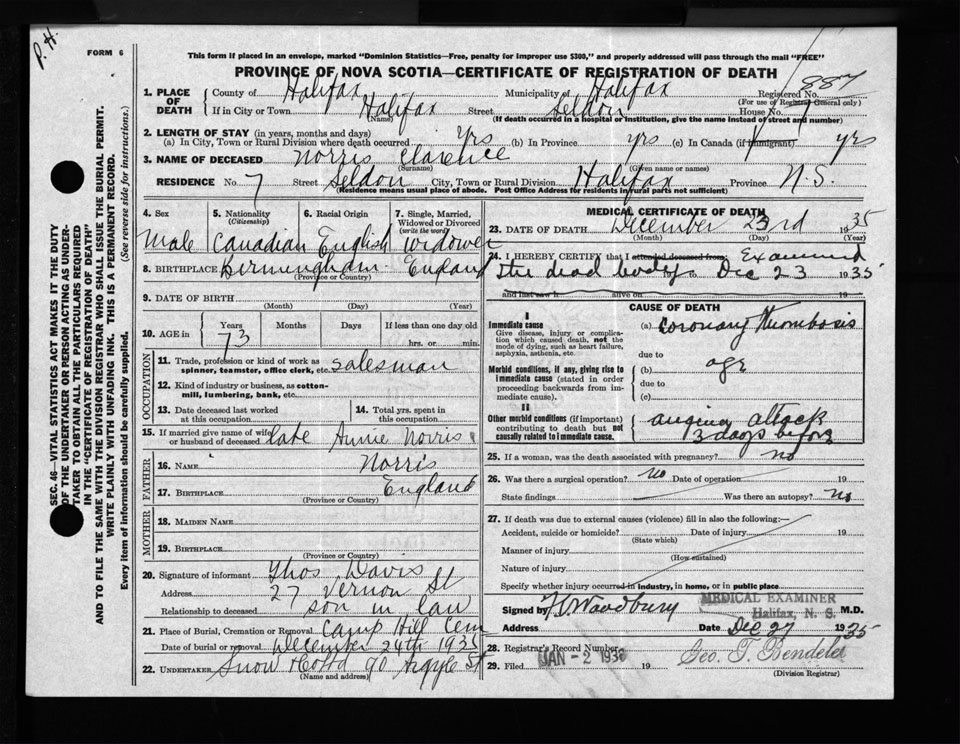 P. H.
FORM 6
This form if placed in an envelope, marked "Dominion Statistics—Free, penalty for improper use $300," and properly addressed will pass through the mail "FREE"
PROVINCE OF NOVA SCOTIA—CERTIFICATE OF REGISTRATION OF DEATH
887
1. PLACE OF DEATH County of Halifax Municipality of Halifax Registered No.
(For use of Registrar General only)
If in City or Town Halifax Street Seldon House No. 7
(Name) (If death occurred in a hospital or institution, give the name instead of street and number)
2. LENGTH OF STAY (in years, months and days)
(a) In City, Town or Rural Division where death occurred yrs (b) In Province yrs (c) In Canada (if immigrant) yrs
3. NAME OF DECEASED Norris Clarence
(Surname) (Given name or names)
RESIDENCE No. 7 Street Seldon City, Town or Rural Division Halifax Province N.S.
(Residence means usual place of abode. Post Office Address for residents in rural parts not sufficient)
4. Sex 5. Nationality (Citizenship) 6. Racial Origin 7. Single, Married, Widowed or Divorced (write the word)
Male Canadian English widower
8. BIRTHPLACE Birmingham England
(Province or Country)
9. DATE OF BIRTH
(Month) (Day) (Year)
10. AGE in Years Months Days If less than one day old
73 hrs. or min.
OCCUPATION
11. Trade, profession or kind of work as spinner, teamster, office clerk, etc. salesman
12. Kind of industry or business, as cotton-mill, lumbering, bank, etc.
13. Date deceased last worked at this occupation
14. Total yrs. spent in this occupation
15. If married give name of wife or husband of deceased late Annie Norris
FATHER
16. NAME Norris
17. BIRTHPLACE England
(Province or Country)
MOTHER
18. MAIDEN NAME
19. BIRTHPLACE
(Province or Country)
20. Signature of informant Thos Davis
Address 27 Vernon St
Relationship to deceased son in law
21. Place of Burial, Cremation or Removal Camp Hill Cem
Date of burial or removal December 24th 1935
22. UNDERTAKER Snow & Co Ltd 90 Argyle St
(Name and address)
MEDICAL CERTIFICATE OF DEATH
23. DATE OF DEATH December 23rd 1935
(Month) (Day) (Year)
24. I HEREBY CERTIFY that I attended deceased from: Examined
the dead body Dec 23 1935
and last saw h alive on 19
CAUSE OF DEATH
I
Immediate cause
Give disease, injury or complication which caused death, not the mode of dying, such as heart failure, asphyxia, asthenia, etc.
(a) Coronary Thrombosis
due to
Morbid conditions, if any, giving rise to immediate cause (stated in order proceeding backwards from immediate cause).
(b) age
due to
(c)
II
Other morbid conditions (if important) contributing to death but not causally related to immediate cause.
angina attack
3 days before
25. If a woman, was the death associated with pregnancy? no
26. Was there a surgical operation? no Date of operation 19
State findings Was there an autopsy? no
27. If death was due to external causes (violence) fill in also the following:—
Accident, suicide or homicide? Date of injury 19
(State which)
Manner of injury
(How sustained)
Nature of injury
Specify whether injury occurred in industry, in home, or in public place
MEDICAL EXAMINER
Halifax, N. S.
Signed by Woodbury M.D.
Address Date Dec 27 1935
28. Registrar's Record Number
29. Filed JAN - 2 1936 19
Geo. T. Bendelei
(Division Registrar)
SEC. 46—VITAL STATISTICS ACT MAKES IT THE DUTY
OF THE UNDERTAKER OR PERSON ACTING AS UNDER-
TAKER TO OBTAIN ALL THE PARTICULARS REQUIRED
IN THE "CERTIFICATE OF REGISTRATION OF DEATH"
AND TO FILE THE SAME WITH THE DIVISION REGISTRAR WHO SHALL ISSUE THE BURIAL PERMIT.
WRITE PLAINLY WITH UNFADING INK. THIS IS A PERMANENT RECORD.
Every item of information should be carefully supplied. (See reverse side for instructions.)